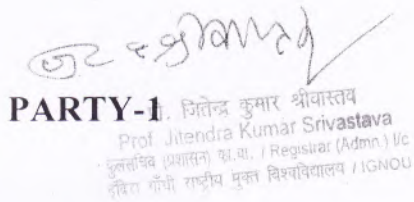 PARTY-1 . जितेन्द्र कुमार श्रीवास्तव
Prof. Jitendra Kumar Srivastava
कुलसचिव (प्रशासन) का.वा. / Registrar (Admn.) I/c
इंदिरा गाँधी राष्ट्रीय मुक्त विश्वविद्यालय / IGNOU